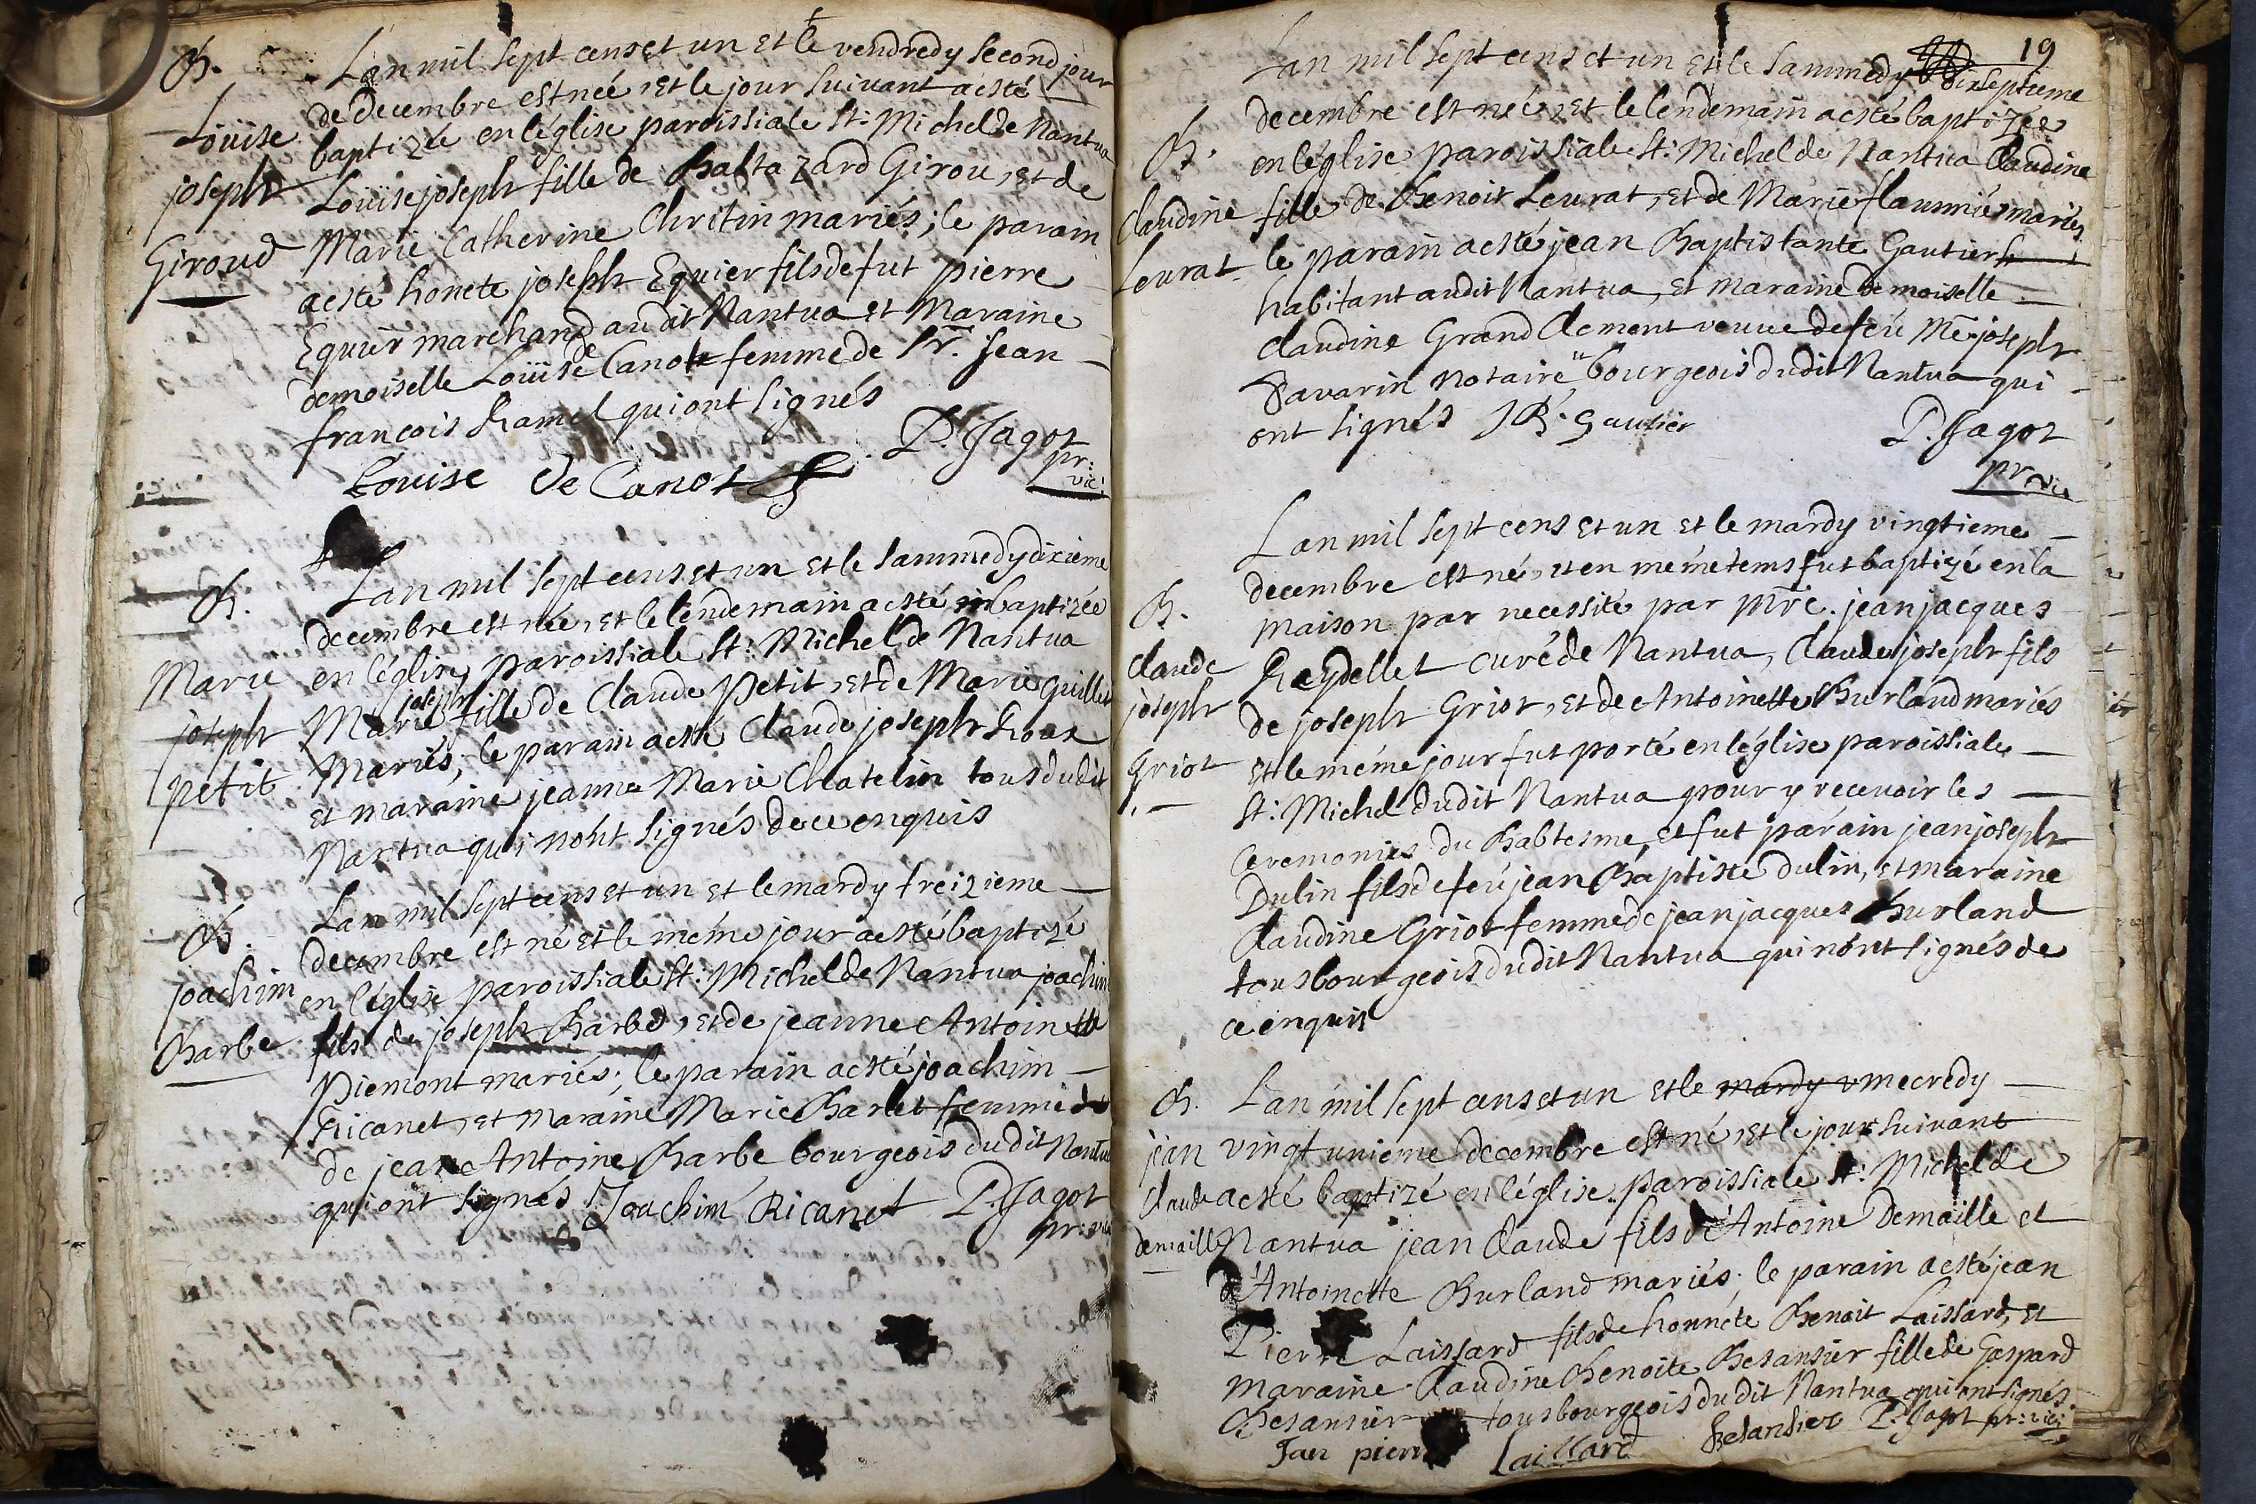 B.
Loüise
joseph
Giroud
Lan mil sept cens et un et le vendredy second jour
de decembre est née, et le jour suivant a esté
baptizée en léglise paroissiale st: Michel de Nantua
Loüise joseph fille de Baltazard Girou, et de
Marie Catherine Chritin mariés; le parain
a esté honete joseph Equier fils de fut pierre
Equier marchand audit Nantua et Maraine
demoiselle Loüise de Canot femme de Sr. Jean
françois Ramel qui ont signés
P. Jagot
pr: vic:
Louise de Canot
B.
Marie
joseph
petit
Lan mil sept cens et un et le sammedy dixieme
decembre est née, et le lendemain a esté baptizée
en léglise paroissiale st: Michel de Nantua
Marie joseph fille de Claude Petit, et de Marie Guillet
Mariés; le parain a esté Claude joseph Roux
et maraine jeanne Marie Chatelin tous dudit
Nantua qui n'ont signés de ce enquis
B.
joachim
Barbe
Lan mil sept cens et un et le mardy treizieme
decembre est né et le méme jour a esté baptizé
en léglise paroissiale st: Michel de Nantua joachim
fils de joseph Barbe, et de jeanne Antoinette
Piemont mariés; le parain a esté joachim
Ricanet, et Maraine Marie Barlet femme de
de jean Antoine Barbe bourgeois dudit Nantua
qui ont signés Joachim Ricanet P. Jagot
pr: vic
19
B.
Claudine
Leurat
Lan mil sept cens et un et le sammedy dixseptieme
decembre est née, et le lendemain a esté baptizée
en léglise paroissiale st: Michel de Nantua Claudine
fille de Benoit Leurat, et de Marie flaumier mariés
le parain a esté jean Baptistante Gautier
habitant audit Nantua, et maraine demoiselle
Claudine Grand Clement veuve de feu Me. joseph
Savarin notaire bourgeois dudit Nantua qui
ont signés J B. Gautier
P. Jagot
pr vic
B.
Claude
joseph
Griot
Lan mil sept cens et un et le mardy vingtieme
decembre est né, et en méme tems fut baptizé en la
maison par necessité par Mre. jean jacques
Reydellet curé de Nantua, Claude joseph fils
de joseph Griot, et de Antoinette Burland mariés
et le méme jour fut porté en léglise paroissiale
st: Michel dudit Nantua pour y recevoir les
ceremonies du Babtesme, et fut parain jean joseph
Dulin fils de feu jean Baptiste dulin, et maraine
Claudine Griot femme de jean jacques Burland
tous bourgeois dudit Nantua qui n'ont signés de
ce enquis
B.
jean
Claude
demaille
Lan mil sept cens et un et le mardy v mecredy
vingt unieme decembre est né, et le jour suivant
a esté baptizé en léglise paroissiale st: Michel de
Nantua jean Claude fils d'Antoine Demaille et
d'Antoinette Burland mariés; le parain a esté jean
Pierre Laissard fils de honnéte Benoit Laissard, et
maraine Claudine Benoite Besansier fille de Gaspard
Besansier tous bourgeois dudit Nantua qui ont signés
Jan pierre Laissard Besansier P. Jagot pr: vic: